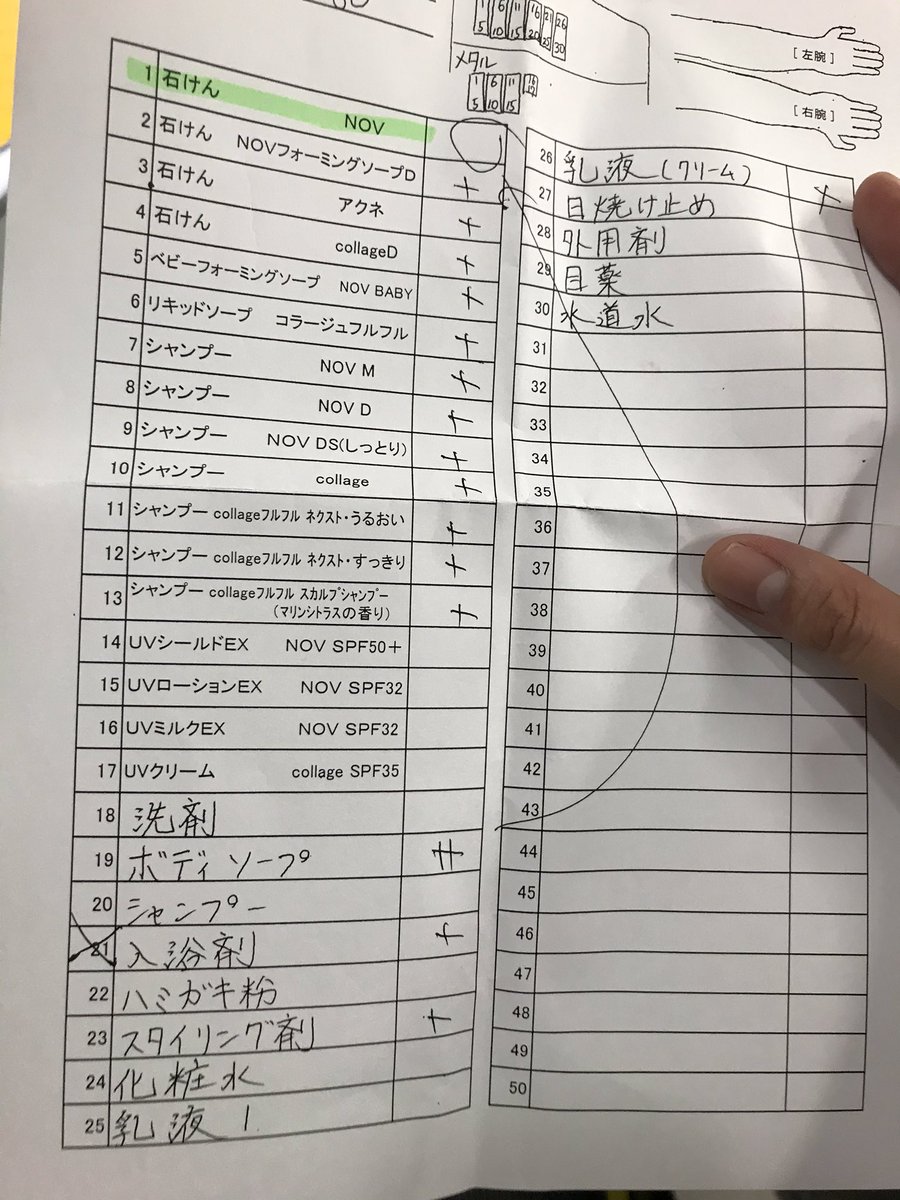 1 5 6 10 11 15 16 20 21 25 26 30
メタル
1 5 6 10 11 15
[ 左腕 ]
[ 右腕 ]
1 石けん NOV
2 石けん NOVフォーミングソープD +
3 石けん アクネ +
4 石けん collageD +
5 ベビーフォーミングソープ NOV BABY +
6 リキッドソープ コラージュフルフル +
7 シャンプー NOV M +
8 シャンプー NOV D +
9 シャンプー NOV DS(しっとり) +
10 シャンプー collage +
11 シャンプー collageフルフル ネクスト・うるおい +
12 シャンプー collageフルフル ネクスト・すっきり +
13 シャンプー collageフルフル スカルプシャンプー
(マリンシトラスの香り) +
14 UVシールドEX NOV SPF50+
15 UVローションEX NOV SPF32
16 UVミルクEX NOV SPF32
17 UVクリーム collage SPF35
18 洗剤
19 ボディソープ ++
20 シャンプー
21 入浴剤 +
22 ハミガキ粉
23 スタイリング剤 +
24 化粧水
25 乳液 1
26 乳液(クリーム)
27 日焼け止め +
28 外用剤
29 目薬
30 水道水
31
32
33
34
35
36
37
38
39
40
41
42
43
44
45
46
47
48
49
50